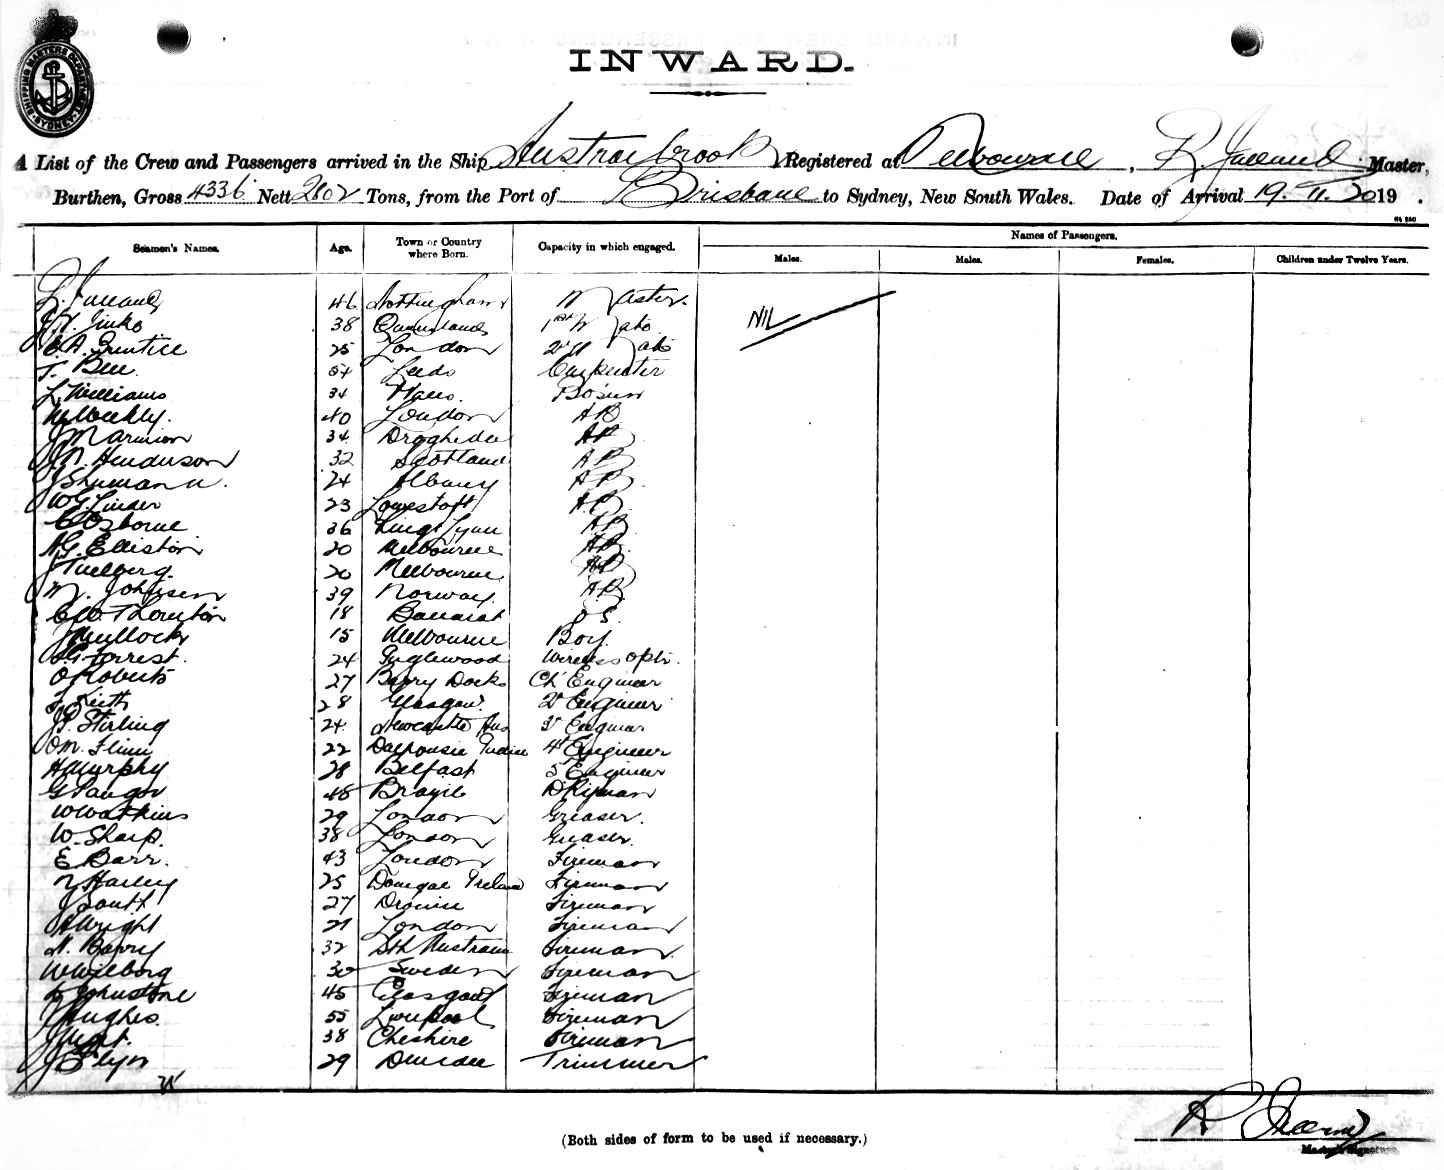 SHIPPING MASTERS DEPARTMENT SYDNEY
INWARD.
A List of the Crew and Passengers arrived in the Ship Australbrook Registered at Melbourne, R. Master,
Burthen, Gross 4336 Nett 2602 Tons, from the Port of Brisbane to Sydney, New South Wales. Date of Arrival 19. 11. 2019 .
Names of Passengers.
Seamen's Names. Age. Town or Country where Born. Capacity in which engaged. Males. Males. Females. Children under Twelve Years.
46 Nottingham Master. NIL
38 Queensland 1st Mate
E.A. Prentice 25 London 2nd Mate
T. Bell 54 Leeds Carpenter
L Williams 34 Wales. Bo'sun
M Weekly. 40 London AB
J Marmion 34 Drogheda AB
J N. Henderson 32 Scotland AB
J Shumann. 24 Albany AB
W G Linder 23 Lowestoft AB
C Osborne 36 Kings Lynn AB
A G. Elliston 20 Melbourne AB
20 Melbourne AB
M. Johnsen 39 Norway. AB
Thornton 18 Ballarat OS.
J Mullock 15 Melbourne Boy
Forrest. 24 Inglewood Wireless Optr.
O Roberts 27 Barry Docks Ch Engineer
Keith 28 Glasgow. 2d Engineer
J S. Stirling 24 Newcastle Aus 3d Engineer
O M. Flinn 22 Dalhousie India 4th Engineer
H Murphy 28 Belfast 5 Engineer
G 48 Brazil D'Kyman
W Watkins 29 London Greaser.
W. Sharp. 38 London Greaser.
E Barr. 43 London Fireman
Harley 25 Donegal Ireland Fireman
27 Fireman
A Wright 21 London Fireman
N. Barry 32 Sth Australia Fireman
W Wilborg 30 Sweden Fireman
Johnstone 45 Glasgow Fireman
J Hughes. 55 Liverpool Fireman
38 Cheshire Fireman
J Flyn 29 Dundee Trimmer
(Both sides of form to be used if necessary.)
Master's Signature.